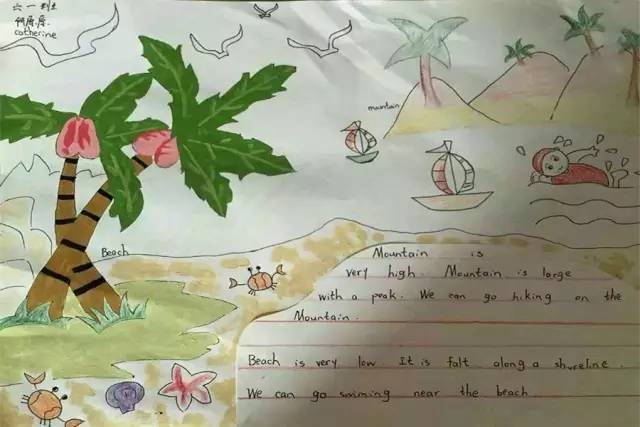 六一班
catherine
mountain
Beach
Mountain is
very high. Mountain is large
with a peak. We can go hiking on the
Mountain.
Beach is very low It is falt along a shoreline.
We can go swiming near the beach